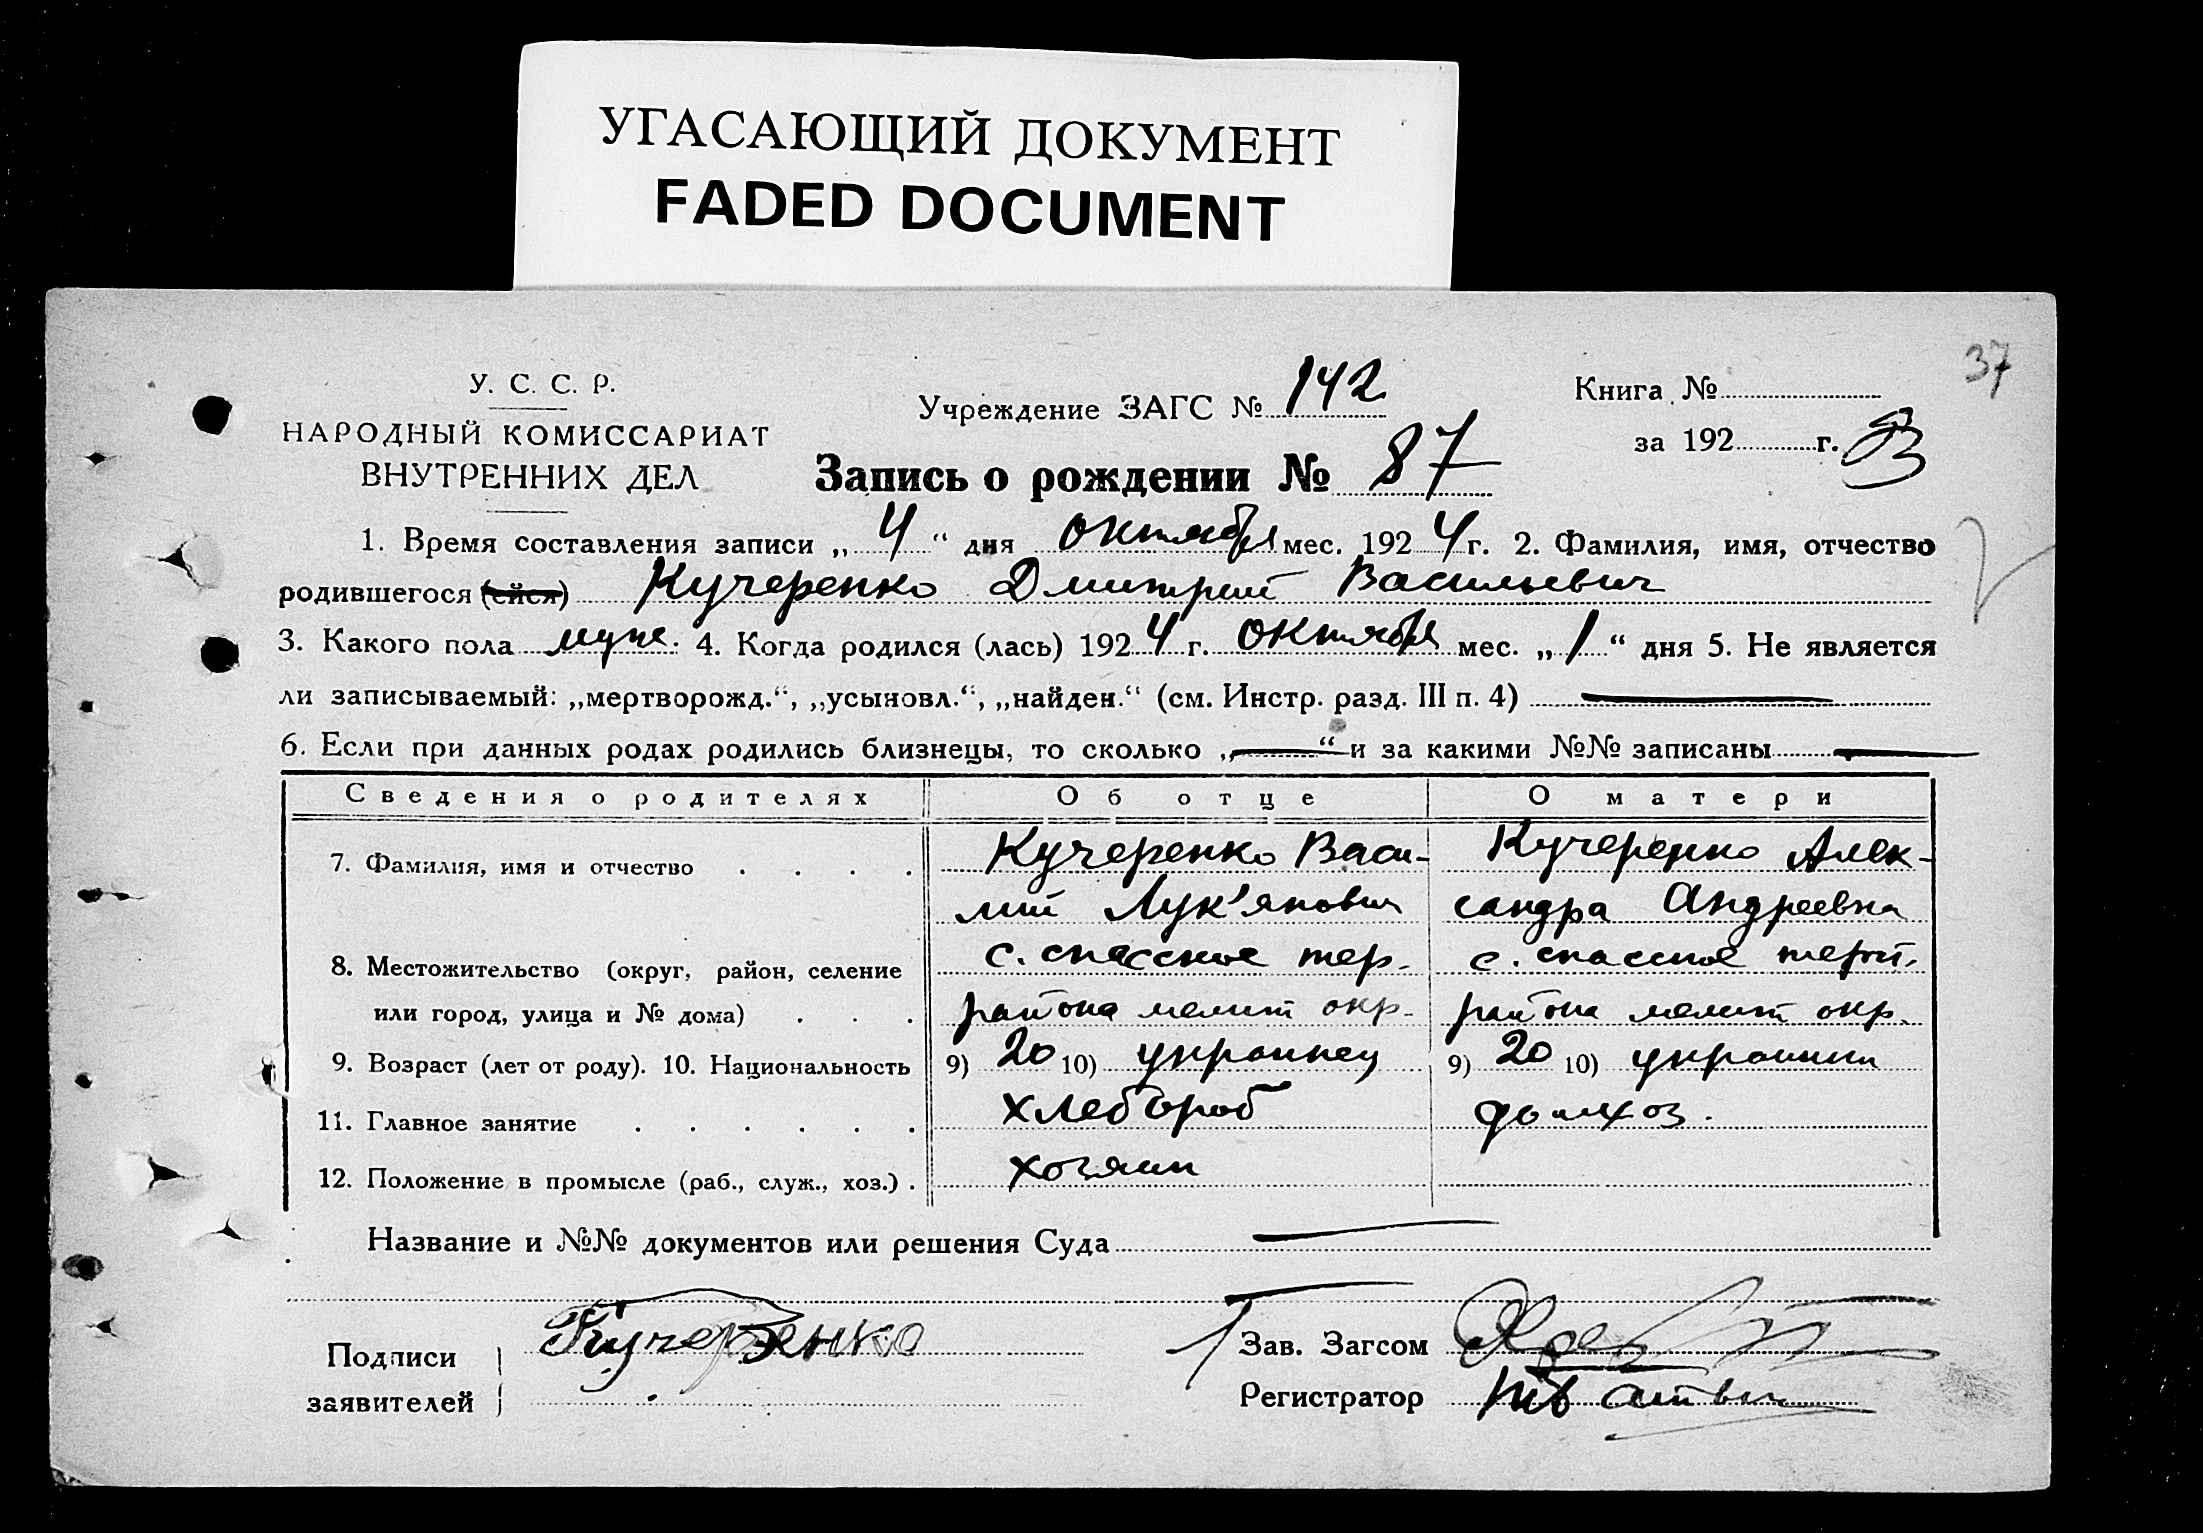 УГАСАЮЩИЙ ДОКУМЕНТ
FADED DOCUMENT
37
У. С. С. Р.
НАРОДНЫЙ КОМИССАРИАТ
ВНУТРЕННИХ ДЕЛ
Учреждение ЗАГС № 142
Книга №
за 192 г.
Запись о рождении № 87
1. Время составления записи „ 4 “ дня октября мес. 192 4 г. 2. Фамилия, имя, отчество
родившегося (ейся) Кучеренко Дмитрий Васильевич
3. Какого пола муж. 4. Когда родился (лась) 192 4 г. октября мес. „ 1 “ дня 5. Не является
ли записываемый: „мертворожд.“, „усыновл.“, „найден.“ (см. Инстр. разд. III п. 4) —
6. Если при данных родах родились близнецы, то сколько „—“ и за какими №№ записаны —
Сведения о родителях Об отце О матери
7. Фамилия, имя и отчество . . . . Кучеренко Васи- Кучеренко Алек-
лий Лук'янович сандра Андреевна
8. Местожительство (округ, район, селение с. спасское тер. с. спасское терп.
или город, улица и № дома) . . . района мелит окр. района мелит окр.
9. Возраст (лет от роду). 10. Национальность 9) 20 10) украинец 9) 20 10) украинка
11. Главное занятие . . . . . . хлебороб домхоз.
12. Положение в промысле (раб., служ., хоз.) . хозяин
Название и №№ документов или решения Суда —
Подписи Кучеренко Зав. Загсом
заявителей Регистратор